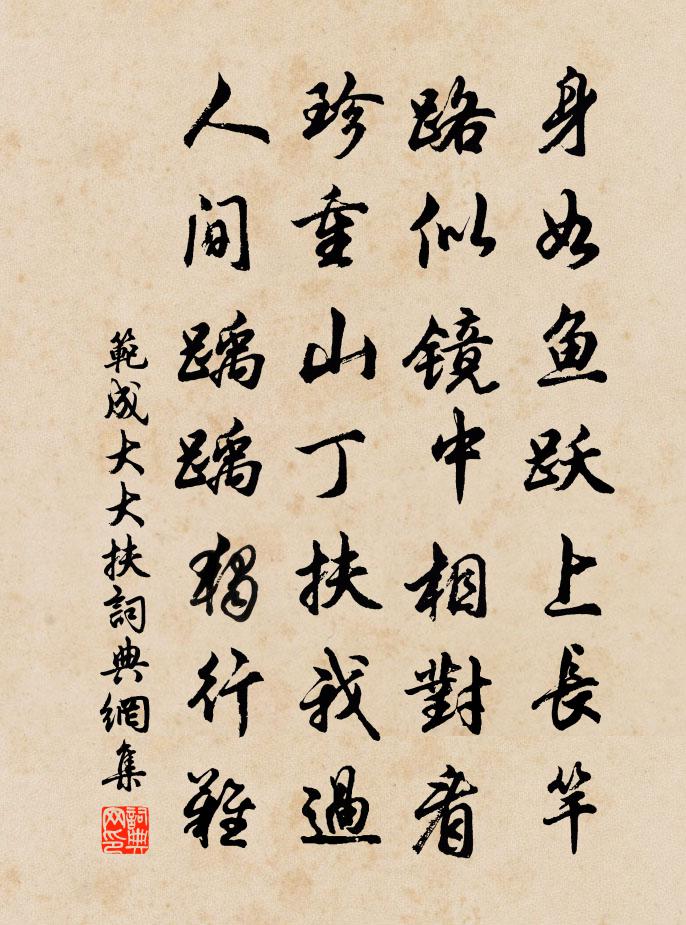 身如鱼跃上长竿
路似镜中相對看
珍重山丁扶我過
人间踽踽獨行難
範成大大扶詞典網集
詞典网印